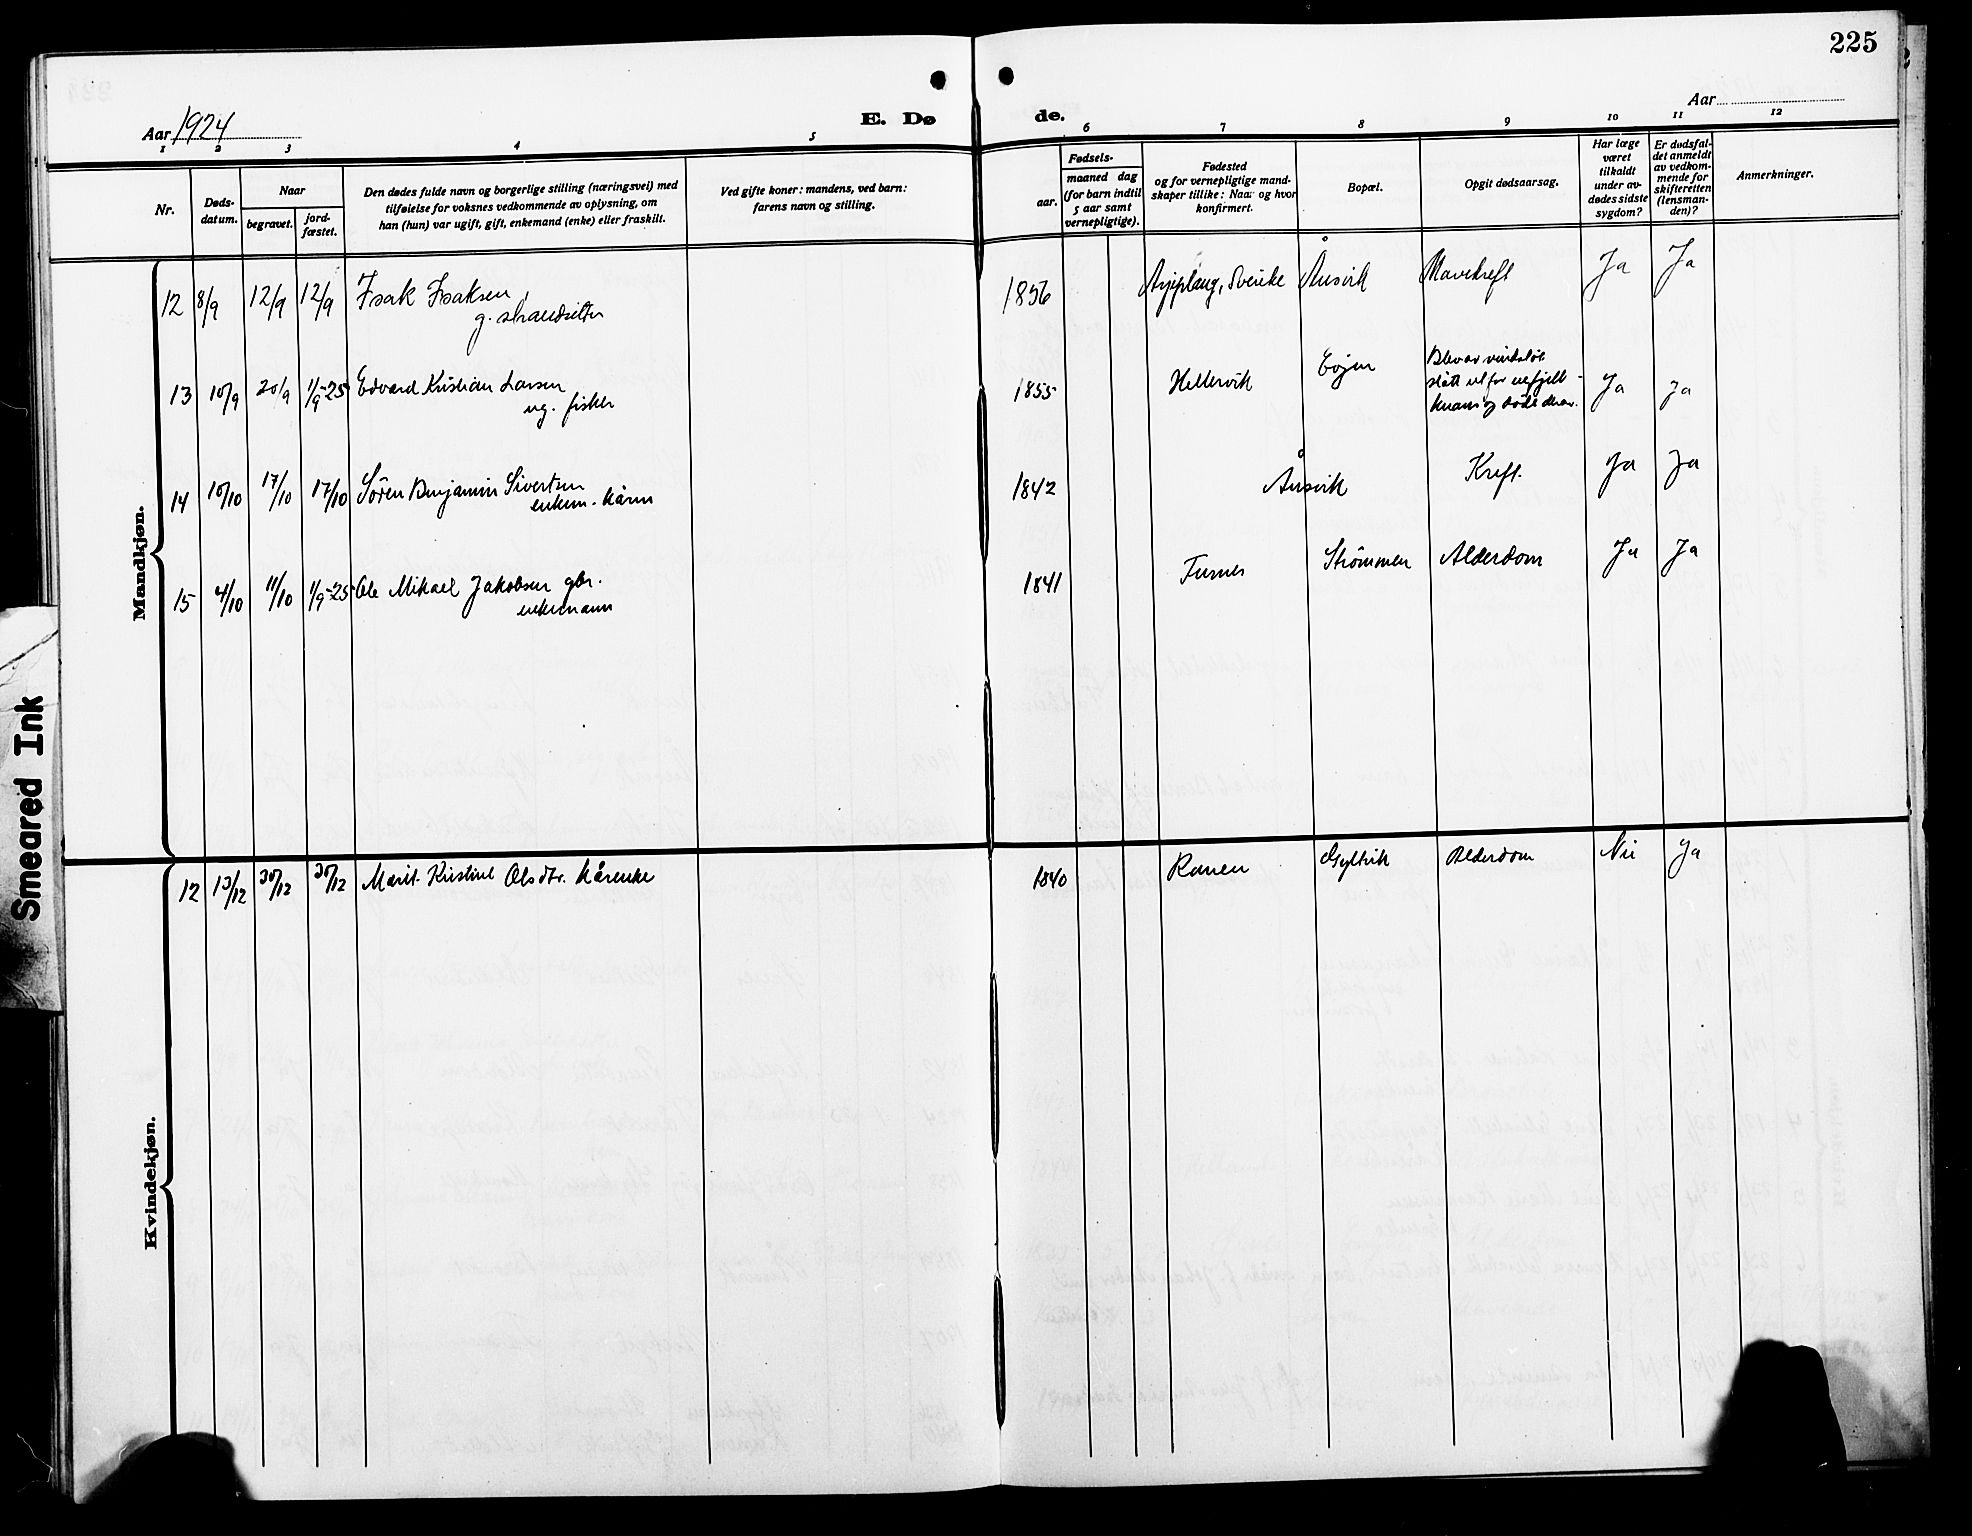 225
Aar 1924
E. Dø
de.
Aar
1 2 3 4 5 6 7 8 9 10 11 12
Nr.
Døds-
datum.
Naar
begravet.
jord-
fæstet.
Den dødes fulde navn og borgerlige stilling (næringsvei) med
tilføielse for voksnes vedkommende av oplysning, om
han (hun) var ugift, gift, enkemand (enke) eller fraskilt.
Ved gifte koner: mandens, ved barn:
farens navn og stilling.
Fødsels-
aar.
maaned dag
(for barn indtil
5 aar samt
vernepligtige).
Fødested
og for vernepligtige mand-
skaper tillike: Naar og hvor
konfirmert.
Bopæl.
Opgit dødsaarsag.
Har læge
været
tilkaldt
under av-
dødes sidste
sygdom?
Er dødsfal-
det anmeldt
av vedkom-
mende for
skifteretten
(lensman-
den)?
Anmerkninger.
Mandkjøn.
12 8/9 12/9 12/9 Isak Isaksen, 1856 Arjeplaug, Sverike Ånsvik Mavekreft Ja Ja
g. strandsitter
13 10/9 20/9 1/9-25 Edvard Kristian Larsen 1855 Hellervik
ug. fisker
Ja ja
14 10/10 17/10 17/10 Søren Benjamin Sivertsen 1842 Ånsvik Kreft. Ja Ja
enkem. kårm
15 4/10 11/10 1/9-25 Ole Mikael Jakobsen gbr. 1841 Furnes Strømmen Alderdom Ja Ja
enkemann
Kvindekjøn.
12 13/12 30/12 30/12 Marit Kristine Olsdtr. kårenke 1840 Ranen Gyltvik Alderdom Nei Ja
Smeared Ink